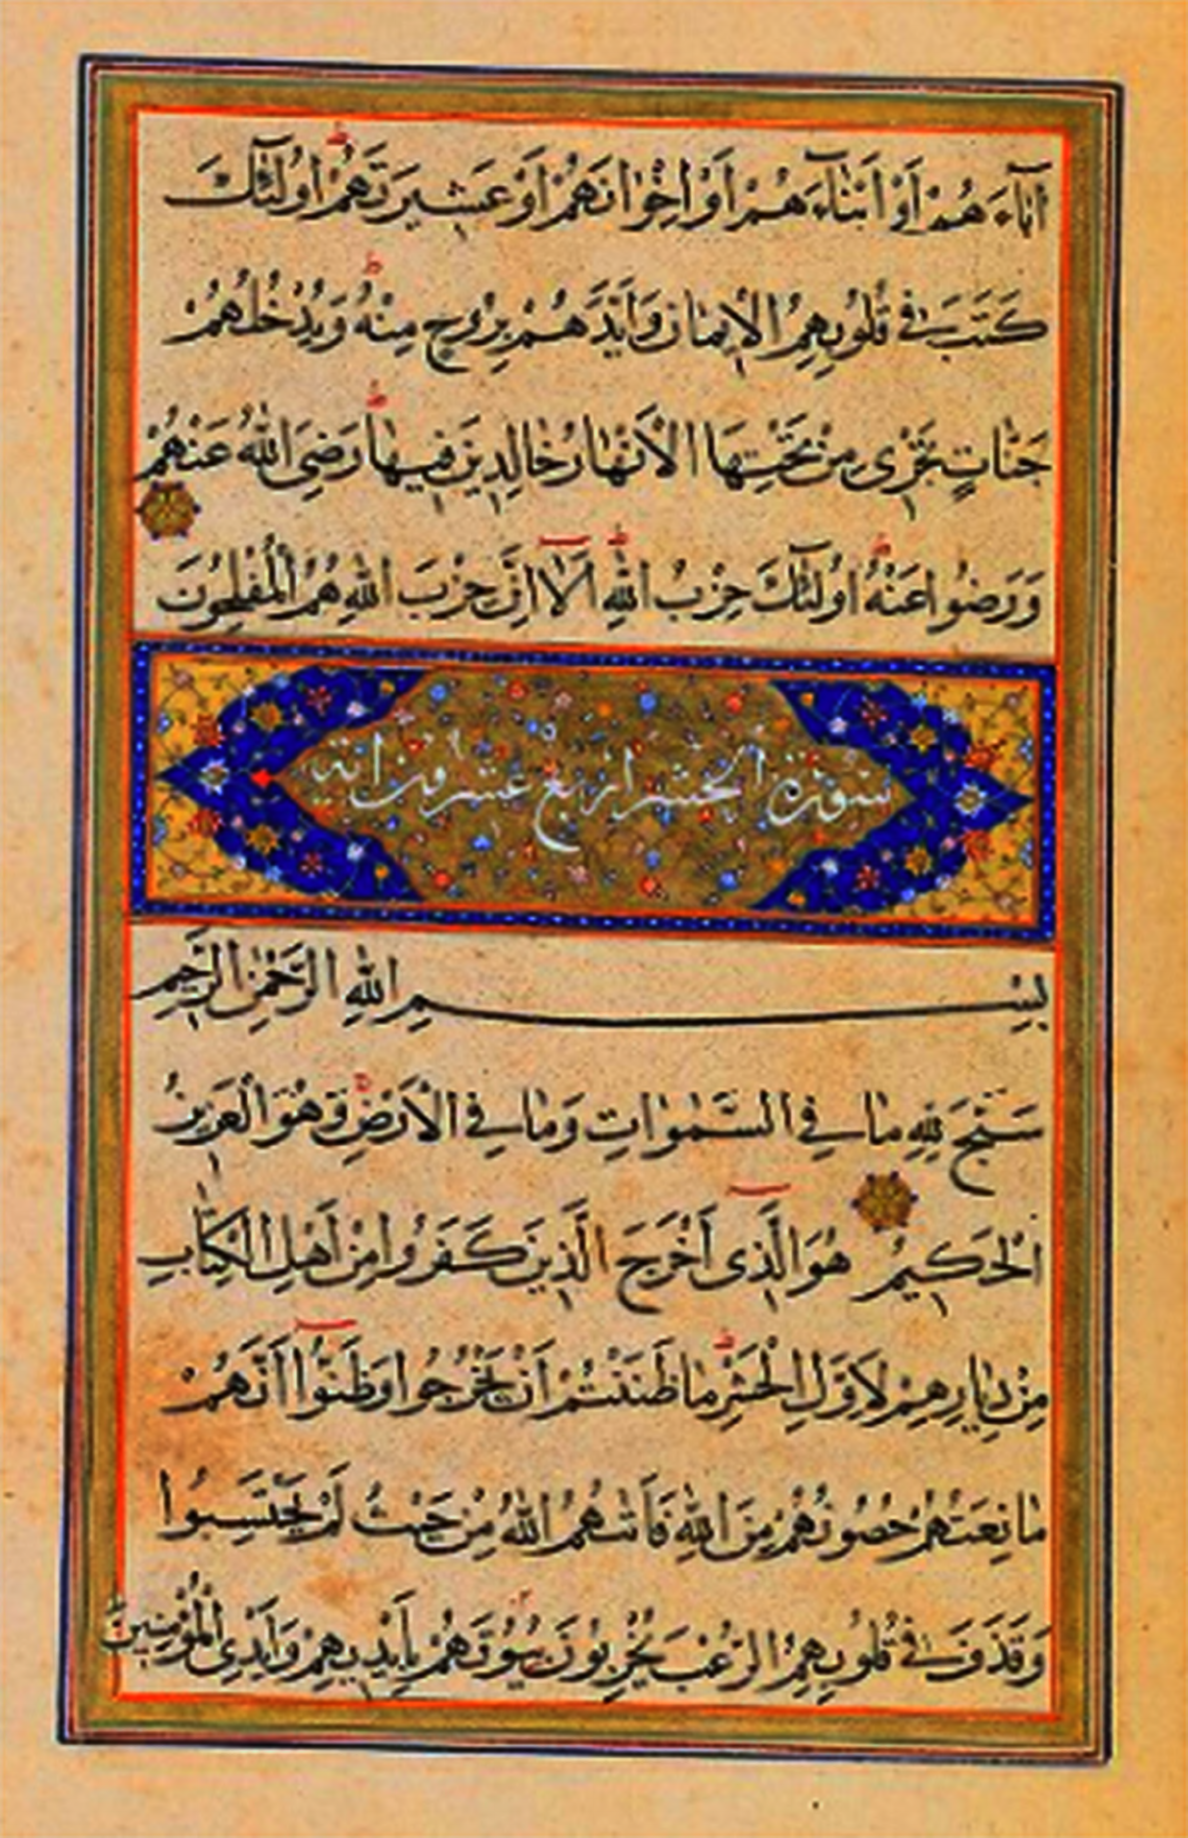 اٰبَآءَهُمْ اَوْ اَبْنَآءَهُمْ اَوْ اِخْوَانَهُمْ اَوْ عَشِيرَتَهُمْ اُولٰٓئِكَ
كَتَبَ فِي قُلُوبِهِمُ الْاِيمَانَ وَاَيَّدَهُمْ بِرُوحٍ مِنْهُ وَيُدْخِلُهُمْ
جَنَّاتٍ تَجْرِى مِنْ تَحْتِهَا الْاَنْهَارُ خَالِدِينَ فِيهَا رَضِيَ اللهُ عَنْهُمْ
وَرَضُوا عَنْهُ اُولٰٓئِكَ حِزْبُ اللهِ اَلَآ اِنَّ حِزْبَ اللهِ هُمُ الْمُفْلِحُونَ
سورة الحشر اربع عشرون اية
بِسْمِ اللهِ الرَّحْمٰنِ الرَّحِيمِ
سَبَّحَ لِلّٰهِ مَا فِي السَّمٰوَاتِ وَمَا فِي الْاَرْضِ وَهُوَ الْعَزِيزُ
الْحَكِيمُ هُوَ الَّذِى اَخْرَجَ الَّذِينَ كَفَرُوا مِنْ اَهْلِ الْكِتَابِ
مِنْ دِيَارِهِمْ لِاَوَّلِ الْحَشْرِ مَا ظَنَنْتُمْ اَنْ يَخْرُجُوا وَظَنُّوٓا اَنَّهُمْ
مَانِعَتُهُمْ حُصُونُهُمْ مِنَ اللهِ فَاَتٰىهُمُ اللهُ مِنْ حَيْثُ لَمْ يَحْتَسِبُوا
وَقَذَفَ فِي قُلُوبِهِمُ الرُّعْبَ يُخْرِبُونَ بُيُوتَهُمْ بِاَيْدِيهِمْ وَاَيْدِى الْمُؤْمِنِينَ